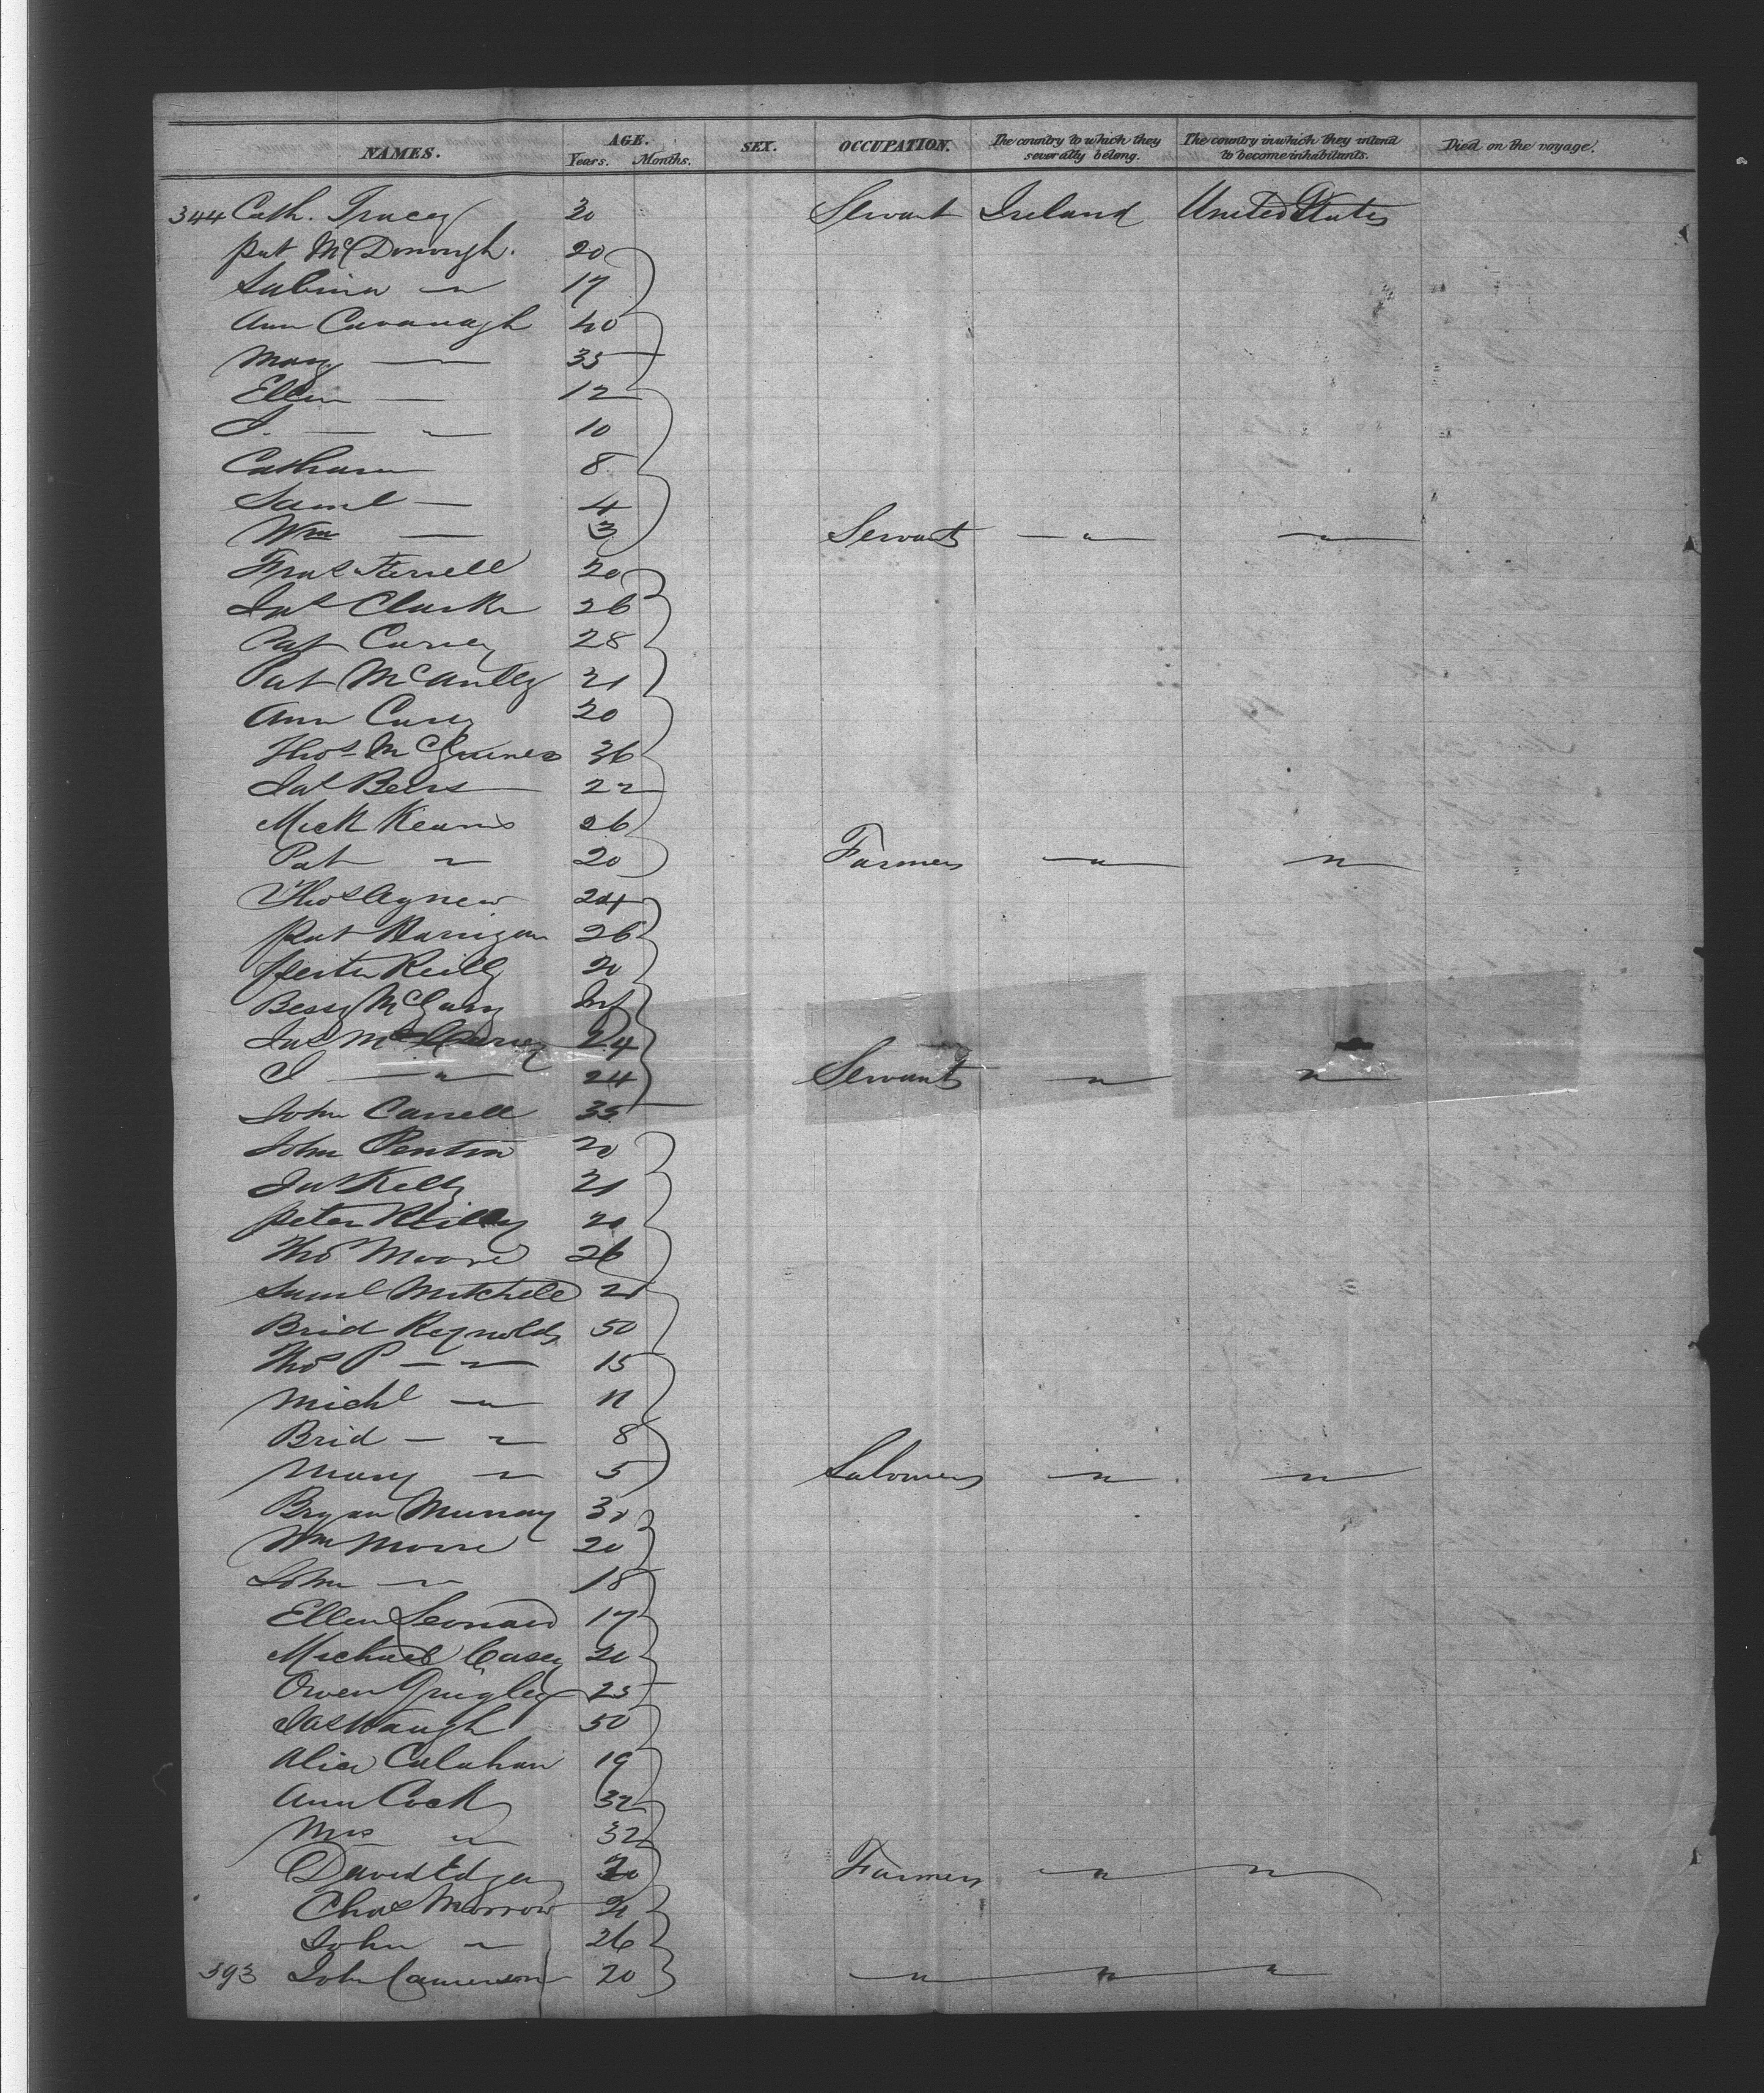 NAMES. AGE. Years. Months. SEX. OCCUPATION. The country to which they severally belong. The country in which they intend to become inhabitants. Died on the voyage.
344 Cath. Tracey 30 Servant Ireland United States
Pat McDonough. 20
Sabina — " 17
Ann Cavanagh 40
Mary — " 35
Ellen — 12
J. — " 10
Catharin 8
Saml — 4
Wm — 3 Servants — " — — " —
Fras Ferrell 20
Jas Clarke 26
Pat Carney 28
Pat McAnlly 21
Ann Casey 20
Thos McGuiness 36
Jas Beers 22
Mick Kearns 26
Pat " 20 Farmers — " — — " —
Thos Agnew 24
Pat Harrigan 26
Peter Reilly 20
Bessy McGarry Inf
Jas Mc 24
J — " — 24 Servants — " — — " —
John Carrell 35
John Penton 20
Jas Kelly 21
Peter Reilly 20
Thos Moore 26
Saml Mitchell 21
Brid Reynolds 50
Thos P — " — 15
Michl — " — 11
Brid — " 8
Mary — " 5 Labourers — " — — " —
Bryan Murray 30
Wm Moore 20
John — " 18
Ellen Leonard 17
Michael Casey 20
Owen Quigley 25
Jas Waugh 50
Alice Calahan 19
Ann Cock 32
Mrs " 32
David Edgar 30 Farmers — " — — " —
Chas Morrow 21
John — " 26
393 John Cameron 20 — " — " — " —